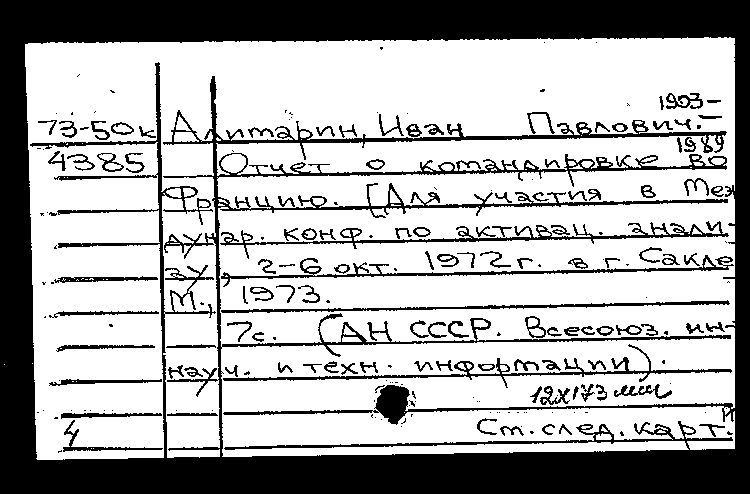 1903-
73-50к Алимарин, Иван Павлович. -
1989
4385 Отчет о командировке во
Францию. [Для участия в Меж
дунар. конф. по активац. анали-
зу, 2-6 окт. 1972 г. в г. Сакле
М., 1973.
7с. (АН СССР. Всесоюз. ин-
науч. и техн. информации).
12х173 мм
4 Ст. след. карт.